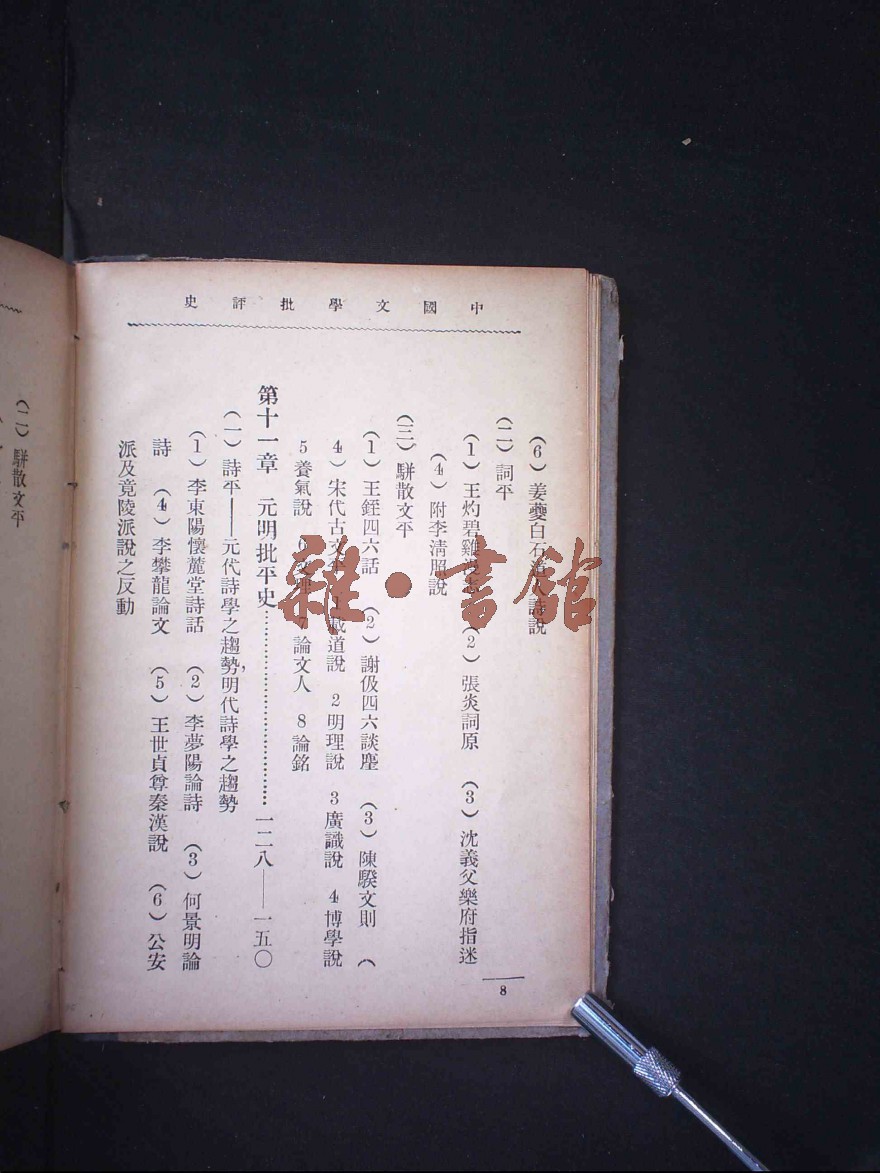 中國文學批評史
(6)姜夔白石道人詩說
(二)詞平
(1)王灼碧雞 (2)張炎詞原 (3)沈義父樂府指迷
(4)附李淸照說
(三)駢散文平
(1)王銍四六話 (2)謝伋四六談麈 (3)陳騤文則 (
4)宋代古文平 載道說 2明理說 3廣識說 4博學說
5養氣說 6 7論文人 8論銘
第十一章 元明批平史⋯⋯⋯⋯⋯⋯⋯⋯一二八——一五〇
(一)詩平——元代詩學之趨勢,明代詩學之趨勢
(1)李東陽懷麓堂詩話 (2)李夢陽論詩 (3)何景明論
詩 (4)李攀龍論文 (5)王世貞尊秦漢說 (6)公安
派及竟陵派說之反動
8
(二)駢散文平
雜·書館